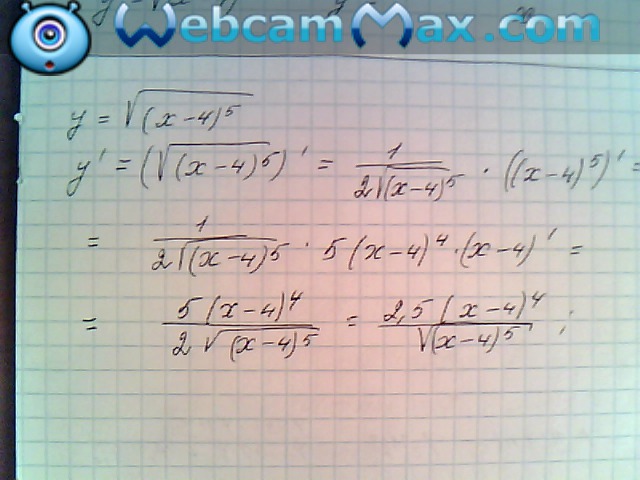 WebcamMax.com
y = √(x-4)⁵
y' = (√(x-4)⁵)' = 1/(2√(x-4)⁵) · ((x-4)⁵)' =
= 1/(2√(x-4)⁵) · 5(x-4)⁴·(x-4)' =
= 5(x-4)⁴/(2√(x-4)⁵) = 2,5(x-4)⁴/√(x-4)⁵ ;